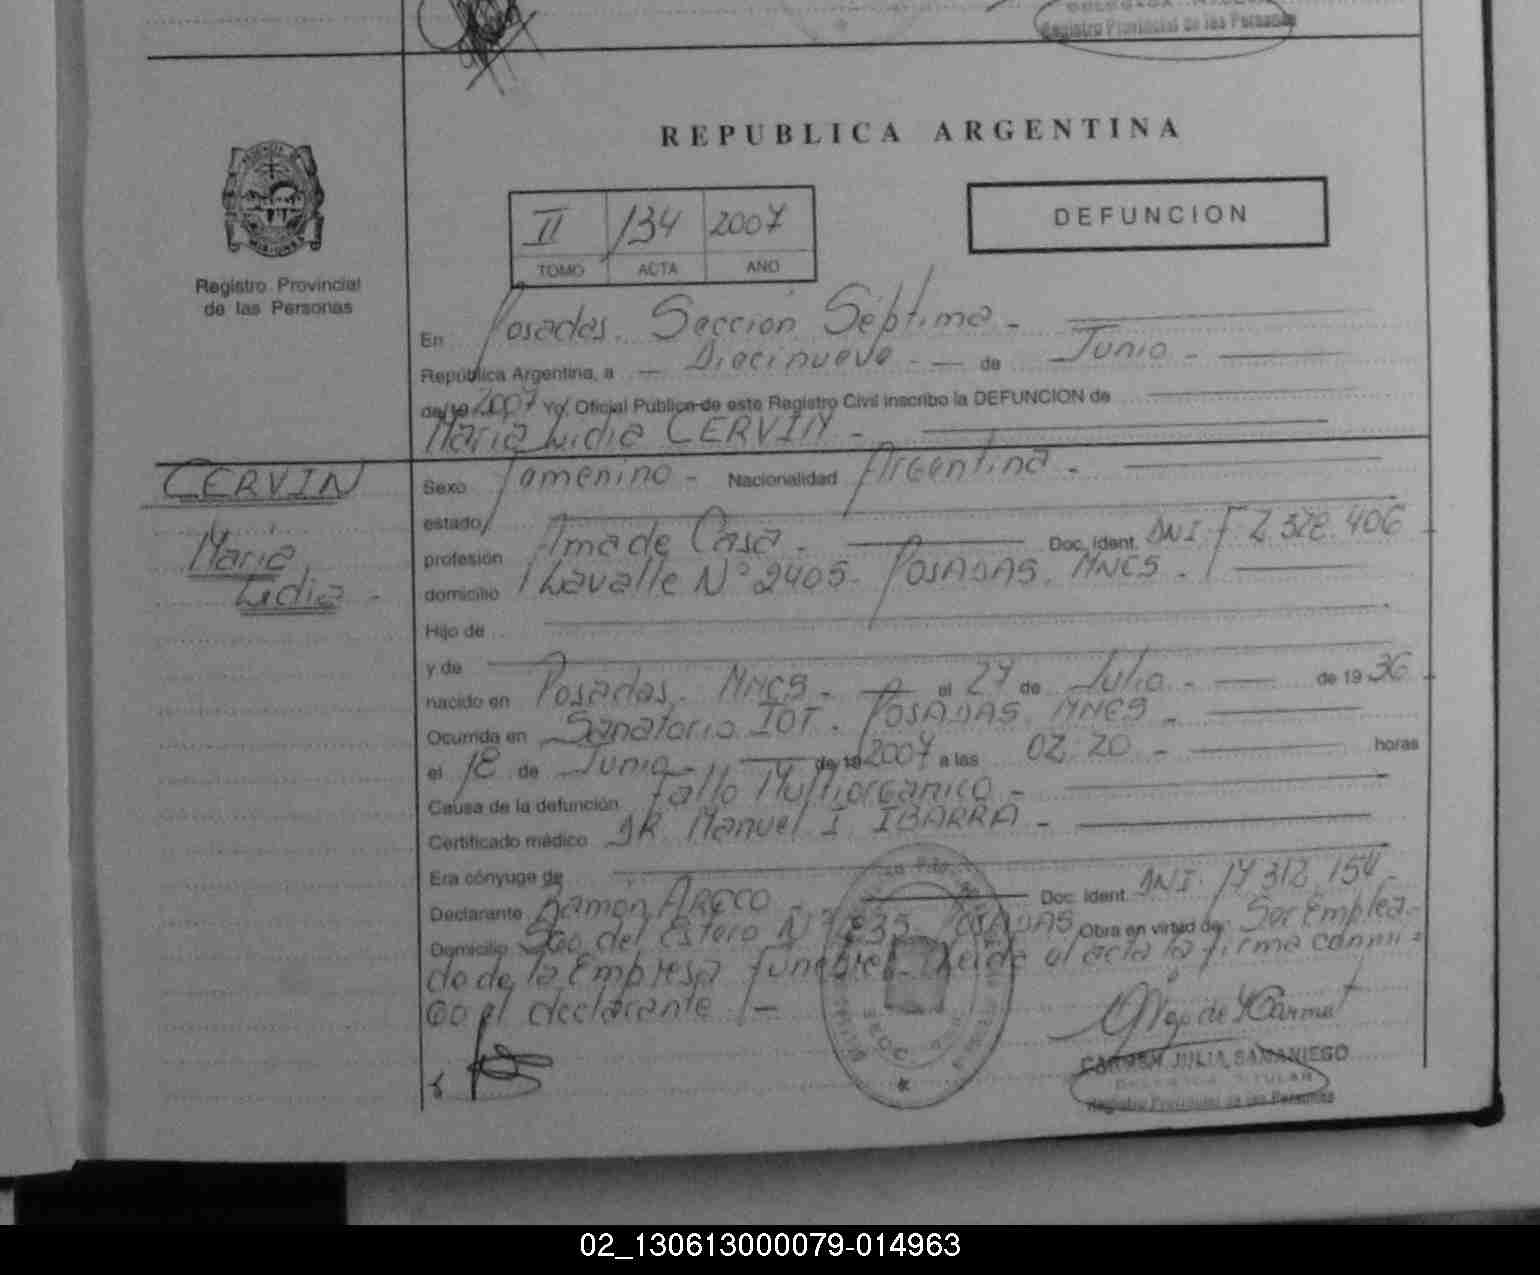 Registro Provincial de las Personas
REPUBLICA ARGENTINA
II 134 2007
TOMO ACTA AÑO
DEFUNCION
Registro Provincial
de las Personas
En Posadas. Sección Séptima -
República Argentina, a — Diecinueve - — de Junio -
de 19 2007 Yo, Oficial Público de este Registro Civil inscribo la DEFUNCION de
Maria Lidia CERVIN -
CERVIN
Maria
Lidia -
Sexo Femenino - Nacionalidad Argentina -
estado
profesión Ama de Casa - Doc. Ident. DNI F 2.328.406
domicilio Lavalle Nº 2405. POSADAS. MNES -
Hijo de
y de
nacido en Posadas. MNES - el 27 de Julio - de 19 36
Ocurrida en Sanatorio IOT. POSADAS. MNES -
el 18 de Junio - de 19 2007 a las 02,20 - horas
Causa de la defunción Fallo Multiorganico -
Certificado médico DR. Manuel I. IBARRA -
Era cónyuge de
Declarante Ramon ARECO - Doc. Ident. DNI. 17.312.154 -
Domicilio Sgo del Estero Nº POSADAS Obra en virtud de Ser Emplea-
do de la Empresa funebre. Leida el acta la firma conmi=
go el declarante -
CARMEN JULIA SAMANIEGO
DELEGADA TITULAR
Registro Provincial de las Personas
02_130613000079-014963